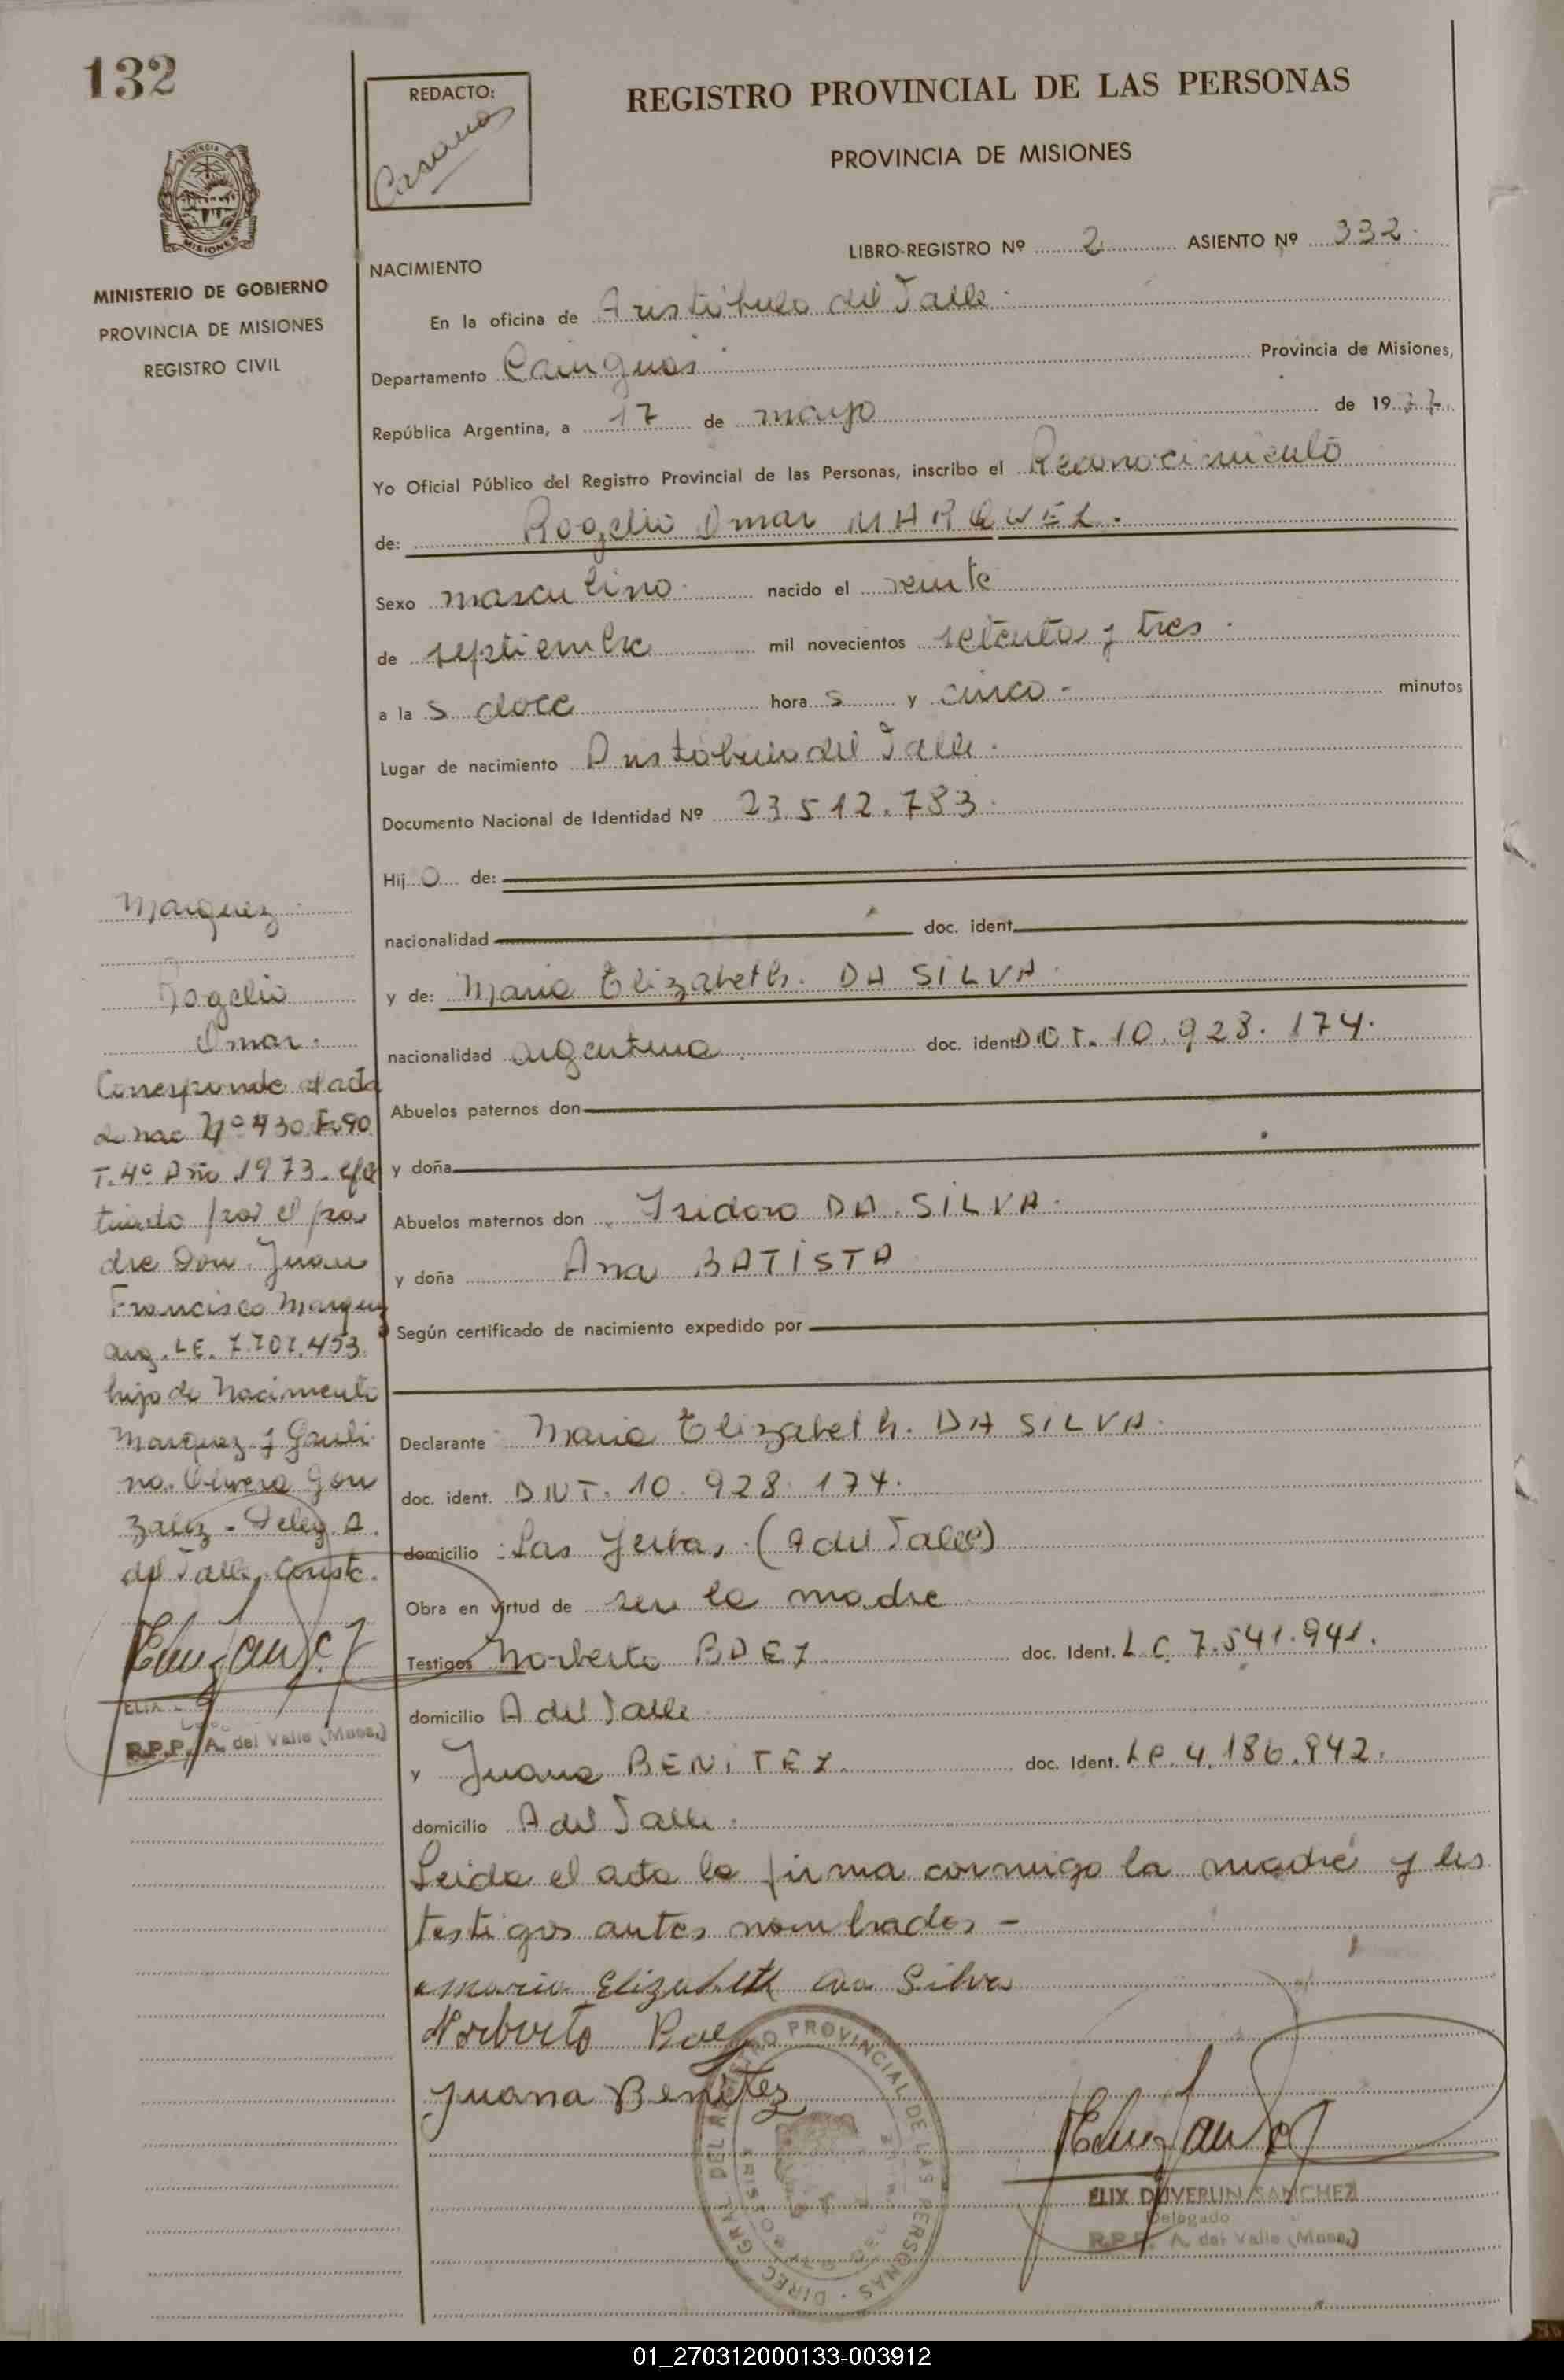 132
REDACTO:
REGISTRO PROVINCIAL DE LAS PERSONAS
PROVINCIA DE MISIONES
PROVINCIA
MISIONES
MINISTERIO DE GOBIERNO
PROVINCIA DE MISIONES
REGISTRO CIVIL
LIBRO-REGISTRO Nº 2 ASIENTO Nº 332.
NACIMIENTO
En la oficina de Aristóbulo del Valle.
Departamento Cainguás Provincia de Misiones,
República Argentina, a 17 de mayo de 1977.
Yo Oficial Público del Registro Provincial de las Personas, inscribo el Reconocimiento
de: Rogelio Omar MARQUEZ.
Sexo masculino nacido el veinte
de septiembre mil novecientos setenta y tres.
a la s doce hora s y cinco - minutos
Lugar de nacimiento Aristóbulo del Valle.
Documento Nacional de Identidad Nº 23.512.783.
Hij o de:
nacionalidad doc. ident.
y de: Maria Elizabeth. DA SILVA.
nacionalidad argentina doc. ident. 10.928.174.
Abuelos paternos don
y doña
Abuelos maternos don Isidoro DA SILVA.
y doña Ana BATISTA
Según certificado de nacimiento expedido por
Declarante Maria Elizabeth. DA SILVA.
doc. ident. 10.928.174.
domicilio Las Yerbas (A del Valle)
Obra en virtud de ser la madre
Testigos Norberto BAEZ doc. Ident. L.E. 7.541.941.
domicilio A del Valle
y Juana BENITEZ doc. Ident. 4.186.942.
domicilio A del Valle.
Leida el acta la firma conmigo la madre y los
testigos antes nombrados -
Maria Elizabeth da Silva
Norberto Baez
Juana Benitez
DIREC. GRAL. DEL REGISTRO PROVINCIAL DE LAS PERSONAS
ELIX DUVERLIN SANCHEZ
Delegado
R.P.P. A. del Valle (Mnes.)
Marquez
Rogelio
Omar.
Corresponde al acta
de nac Nº 430 Fº 90
T. 4º Año 1973. efec
tuado por el pa
dre Don. Juan
Francisco Marquez
arg. LE. 7.707.453.
hijo de Nacimento
Marquez y Pauli
na. Olivera Gon
zalez - Deleg. A.
del Valle. Conste.
R.P.P. A. del Valle (Mnes.)
01_270312000133-003912